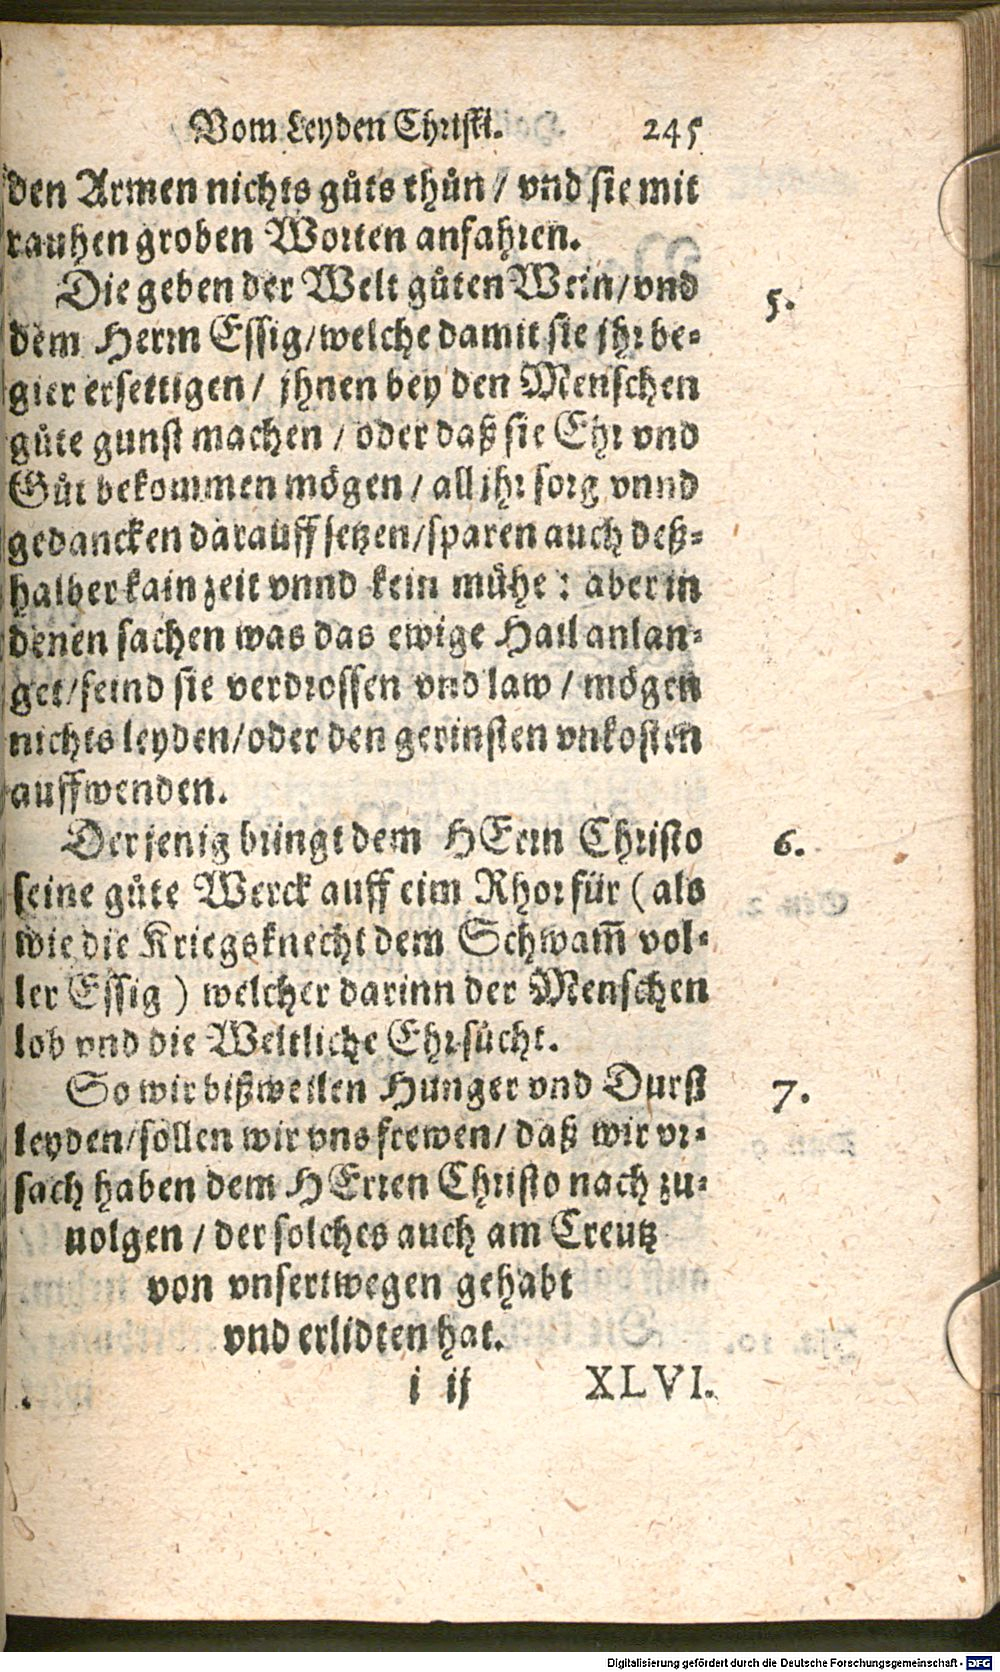 Vom Leyden Christi. 245
den Armen nichts gůts thůn / vnd sie mit
rauhen groben Worten anfahren.
Die geben der Welt gůten Wein/vnd 5.
dem Herrn Essig/welche damit sie jhr be-
gier ersettigen / jhnen bey den Menschen
gůte gunst machen / oder daß sie Ehr vnd
Gůt bekommen mögen / all jhr sorg vnnd
gedancken darauff setzen/sparen auch deß-
halber kain zeit vnnd kein mühe : aber in
denen sachen was das ewige Hail anlan-
get/seind sie verdrossen vnd law / mögen
nichts leyden/oder den gerinsten vnkosten
auffwenden.
Der jenig bringt dem HErrn Christo 6.
seine gůte Werck auff eim Rhor für (als
wie die Kriegsknecht dem Schwam̃ vol-
ler Essig ) welcher darinn der Menschen
lob vnd die Weltliche Ehr sůcht.
So wir bißweilen Hunger vnd Durst 7.
leyden/sollen wir vns frewen/ daß wir vr-
sach haben dem HErren Christo nach zu-
uolgen / der solches auch am Creutz
von vnsertwegen gehabt
vnd erlidten hat.
i ij XLVI.
Digitalisierung gefördert durch die Deutsche Forschungsgemeinschaft - DFG